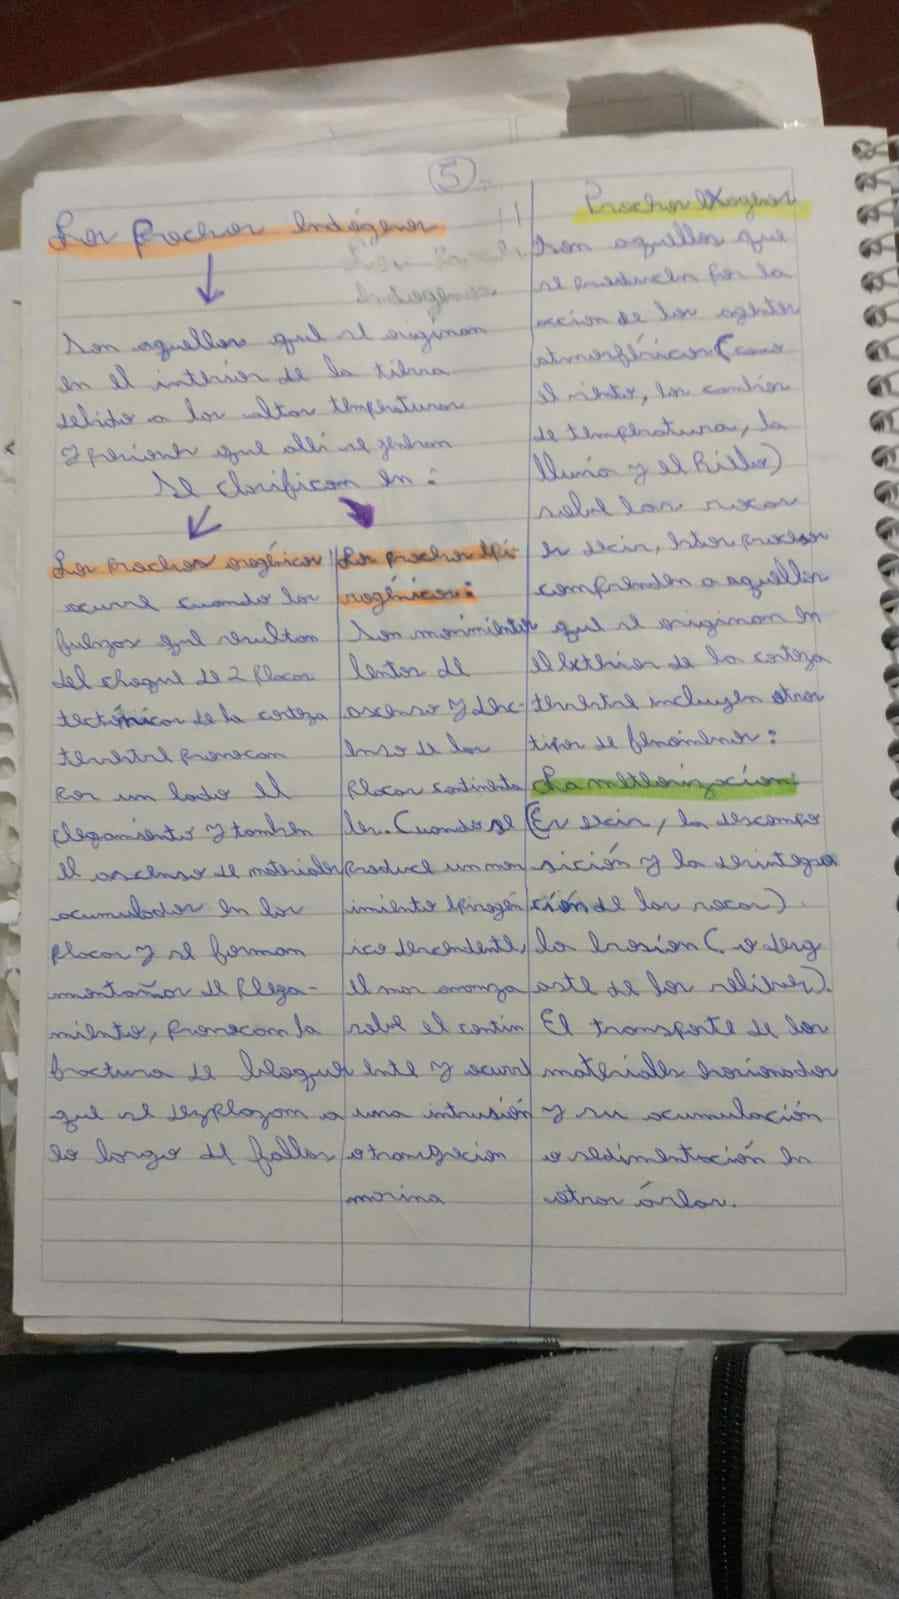 5
Los procesos Endógenos
Son aquellos que se originan
en el interior de la tierra
debido a las altas temperaturas
y presiones que alli se generan
Se clasifican en:
Los procesos orogénicos
ocurre cuando las
fuerzas que resultan
del choque de 2 placas
tectónicas de la corteza
terrestre provocan
por un lado el
plegamiento y tambien
el ascenso de materiales
acumulados en las
placas y se forman
montañas de plega-
miento, provocan la
fractura de bloques
que se desplazan a
lo largo de fallas
Los procesos epi-
rogénicos:
Son movimientos
lentos de
ascenso y desc-
enso de las
placas continenta
les. Cuando se
produce un mov
imiento epirogén
ico descendente,
el mar avanza
sobre el contin
ente y ocurre
una intrusión
o transgrecion
marina
Procesos Exogenos
Son aquellos que
se producen por la
accion de los agentes
atmosféricos (como
el viento, los cambios
de temperatura, la
lluvia y el hielo)
sobre las rocas
es decir, estos procesos
comprenden a aquellos
que se originan en
el exterior de la corteza
terrestre incluyen otros
tipos de fenómenos:
La meteorizacion
(Es decir, la descompo
sición y la desintegra
ción de las rocas)
la erosión (o desg
aste de los relieves).
El transporte de los
materiales erosionados
y su acumulación
o sedimentación en
otras áreas.